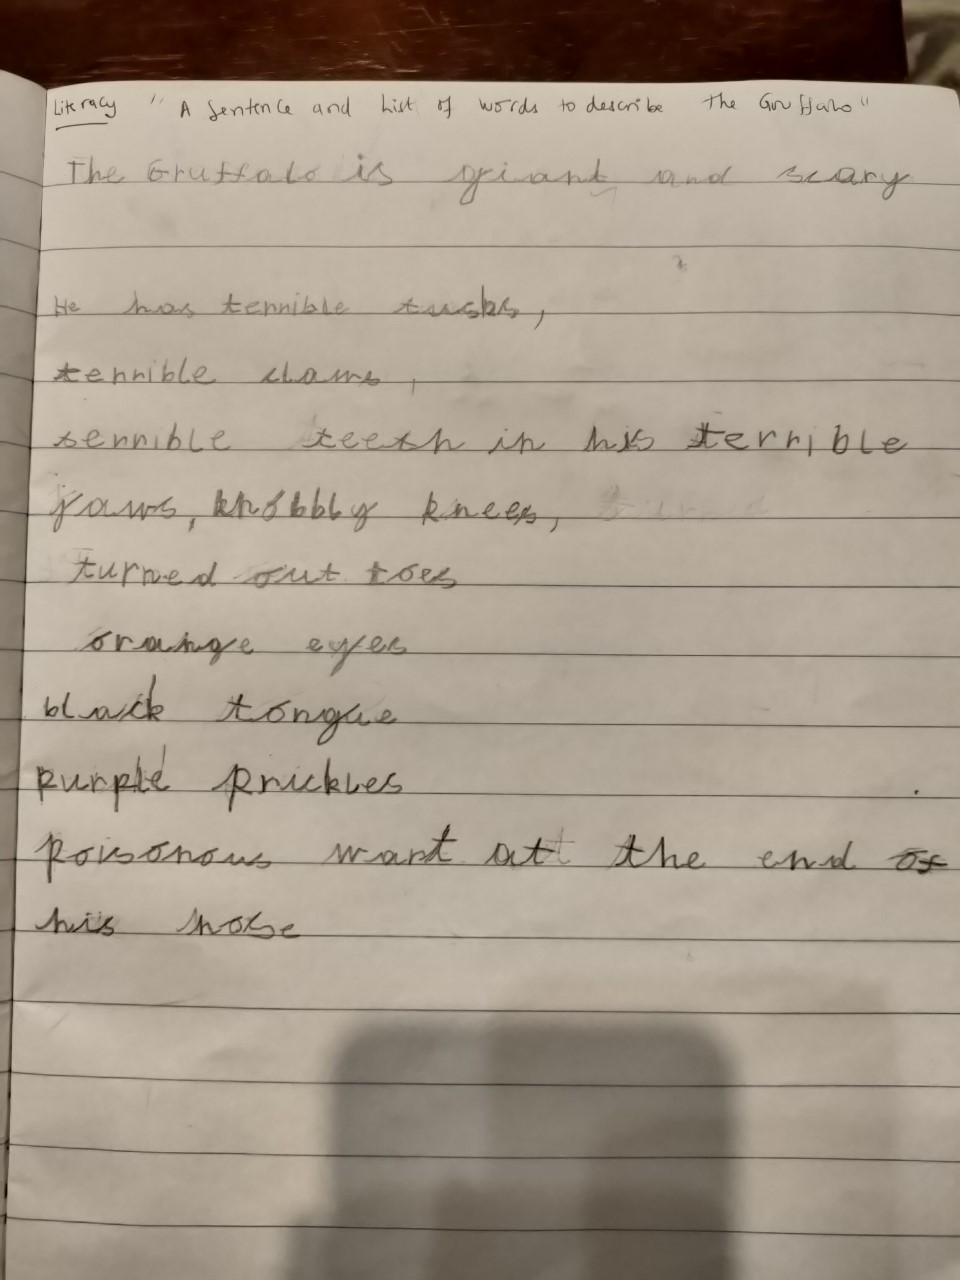 Literacy "A Sentence and List of words to describe The Gruffalo"
The Gruffalo is giant and scary
He has terrible tusks,
terrible claws,
terrible teeth in his terrible
jaws, knobbly knees,
turned out toes
orange eyes
black tongue
purple prickles
poisonous wart at the end of
his nose